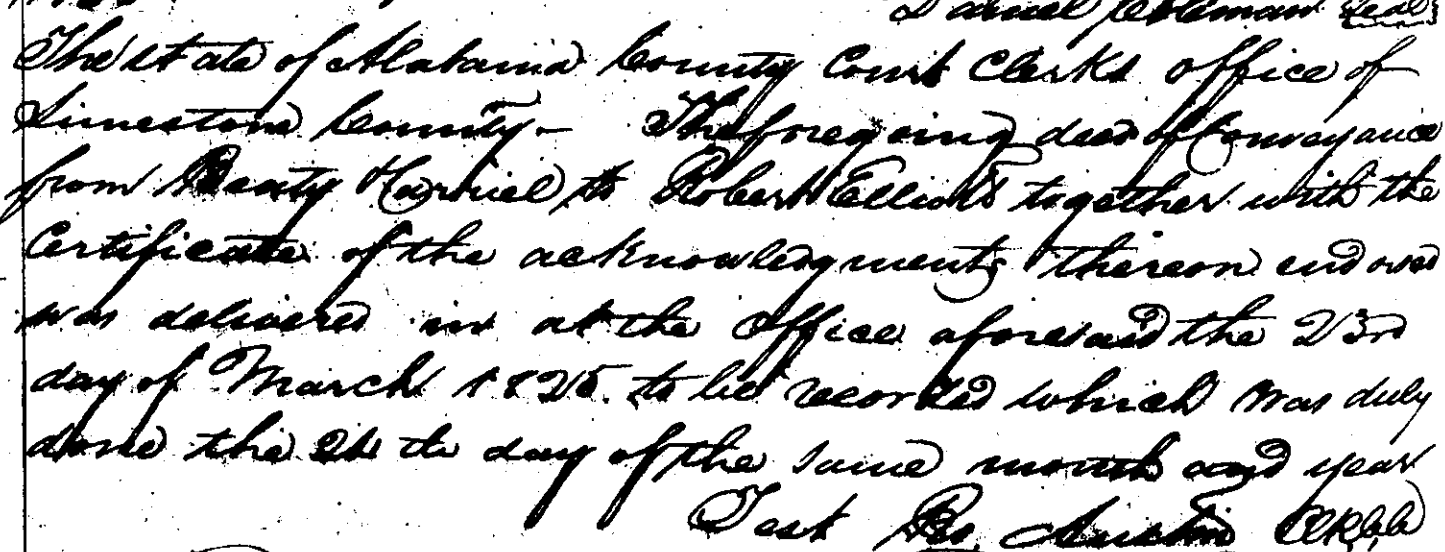 Daniel Coleman Seal
The state of Alabama County Court Clerks office of
Limestone County - The foregoing deed of Conveyance
from Beaty Harriel to Robert Elliott together with the
Certificate of the acknowledgments thereon endorsed
was delivered in at the office aforesaid the 23rd
day of March 1825 to be recorded which was duly
done the 24 th day of the same month and year
Test Ro. Austin Clk